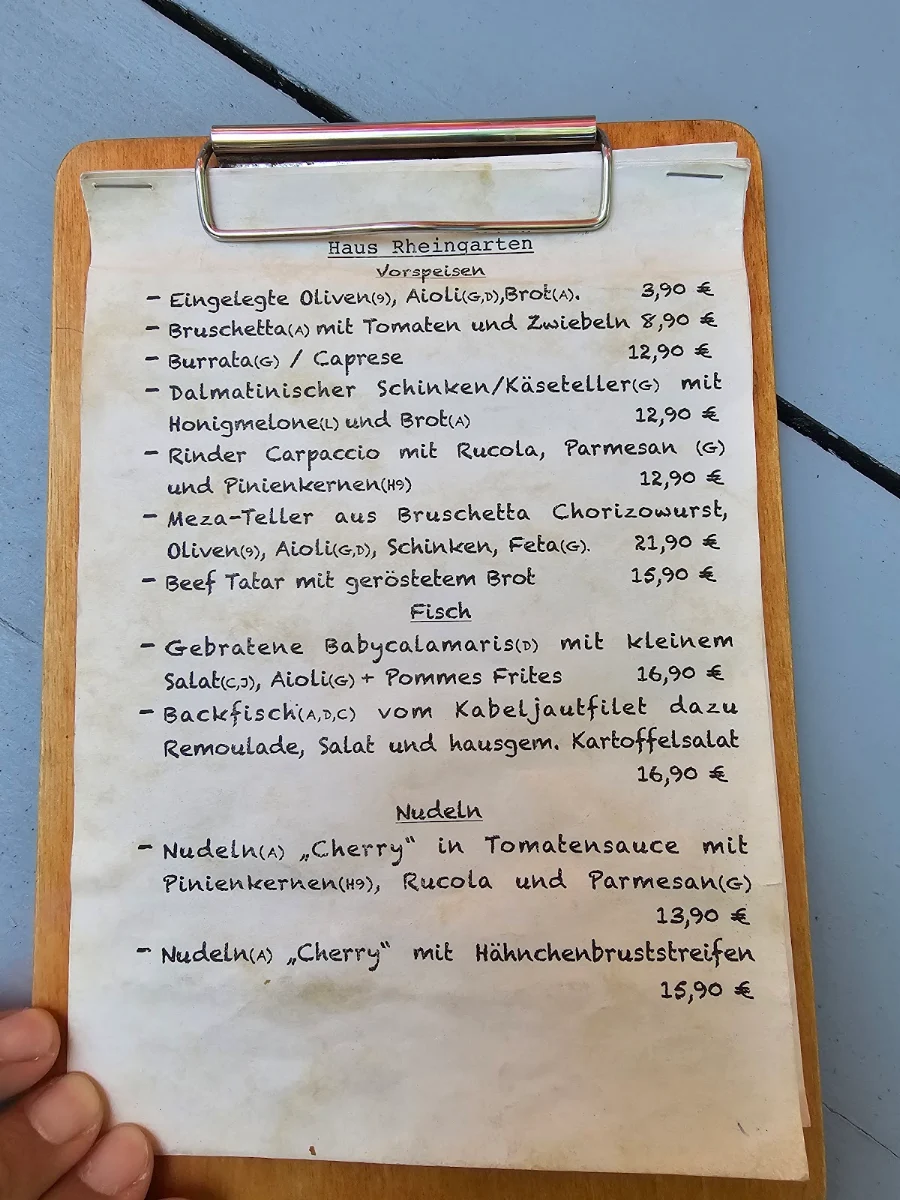 Haus Rheingarten
Vorspeisen
- Eingelegte Oliven(9), Aioli(G,D),Brot(A). 3,90 €
- Bruschetta(A) mit Tomaten und Zwiebeln 8,90 €
- Burrata(G) / Caprese 12,90 €
- Dalmatinischer Schinken/Käseteller(G) mit
Honigmelone(L) und Brot(A) 12,90 €
- Rinder Carpaccio mit Rucola, Parmesan (G)
und Pinienkernen(H9) 12,90 €
- Meza-Teller aus Bruschetta Chorizowurst,
Oliven(9), Aioli(G,D), Schinken, Feta(G). 21,90 €
- Beef Tatar mit geröstetem Brot 15,90 €
Fisch
- Gebratene Babycalamaris(D) mit kleinem
Salat(C,J), Aioli(G) + Pommes Frites 16,90 €
- Backfisch(A,D,C) vom Kabeljautfilet dazu
Remoulade, Salat und hausgem. Kartoffelsalat
16,90 €
Nudeln
- Nudeln(A) „Cherry“ in Tomatensauce mit
Pinienkernen(H9), Rucola und Parmesan(G)
13,90 €
- Nudeln(A) „Cherry“ mit Hähnchenbruststreifen
15,90 €